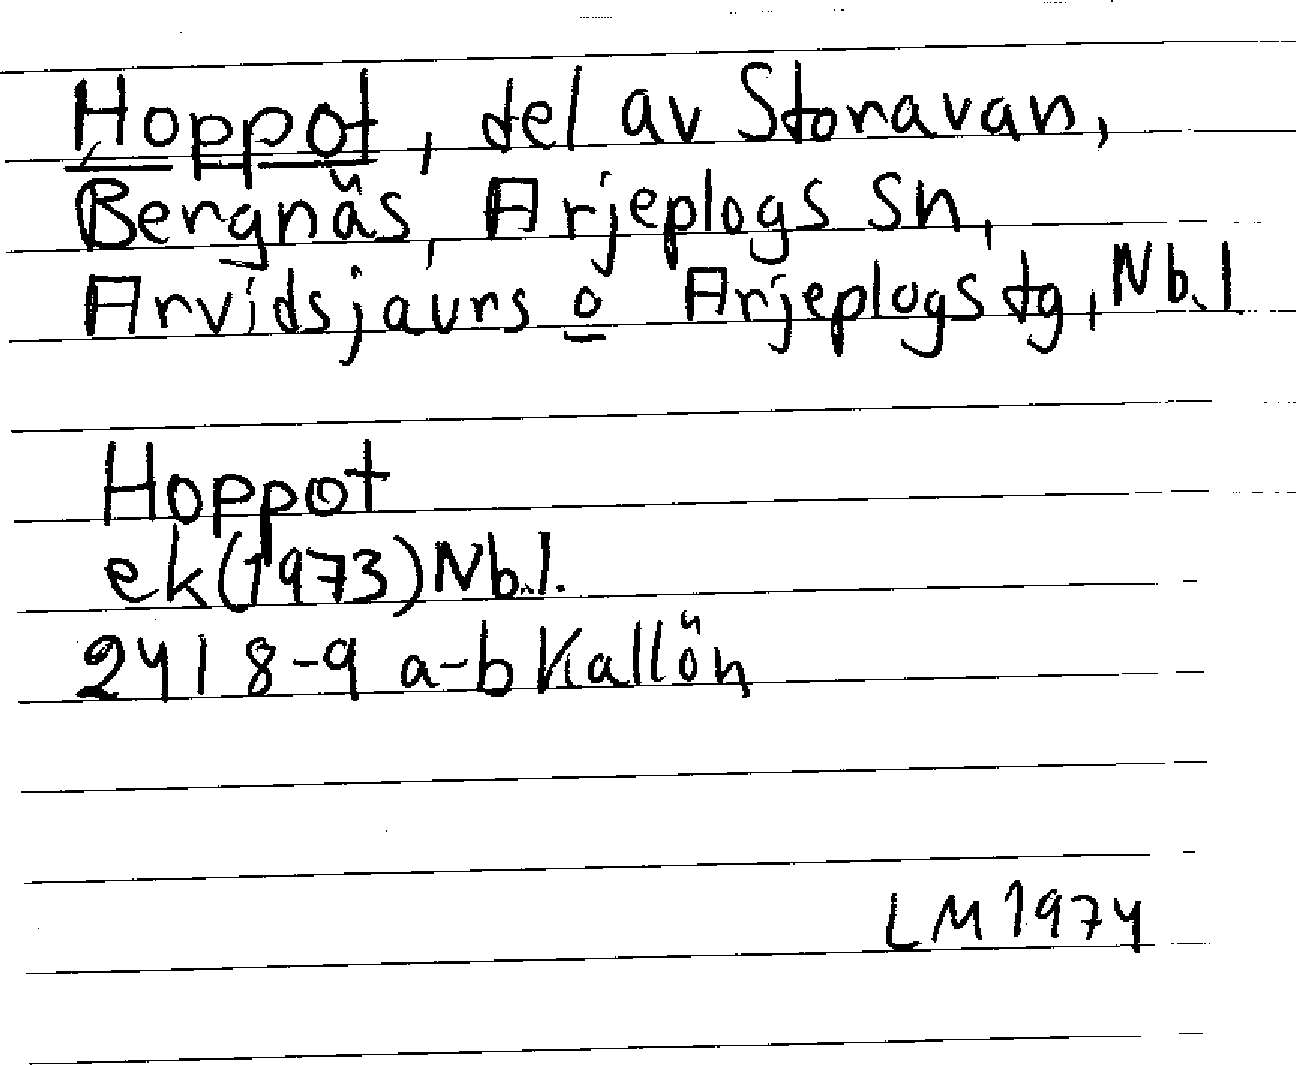 Hoppot, del av Storavan,
Bergnäs, Arjeplogs sn,
Arvidsjaurs o Arjeplogs tg, Nb.l
Hoppot
ek(1973)Nb.l.
241 8-9 a-b Kallön
LM 1974